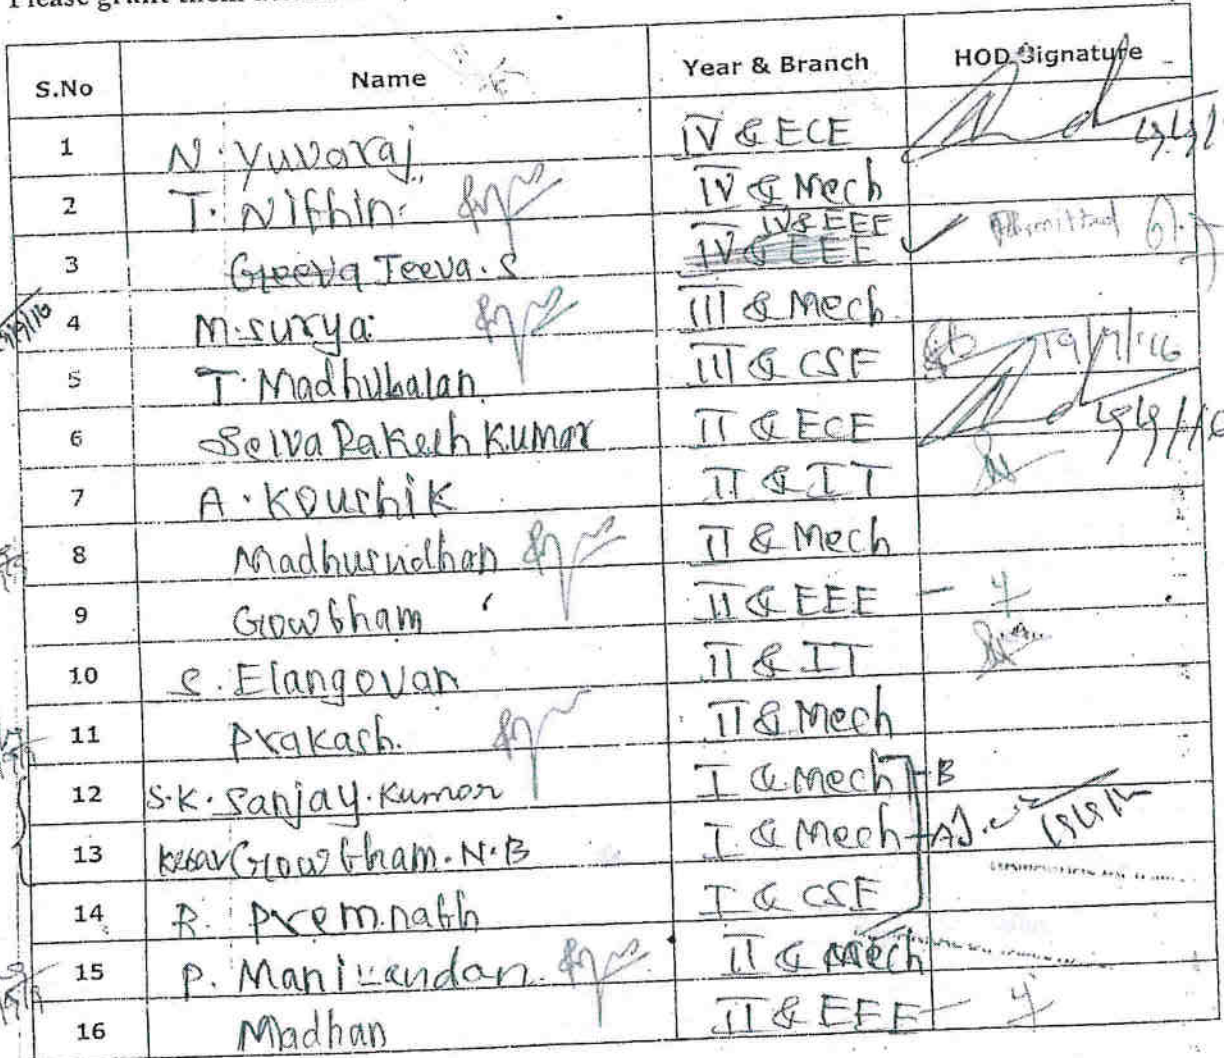 Please grant them
S.No Name Year & Branch HOD Signature
1 N. Yuvaraj IV & ECE
2 T. Nithin IV & Mech
IV & EEE
3 Greeva Jeeva. S IV & EEE Permitted
4 M. Surya III & Mech
5 T. Madhubalan III & CSE 19/9/16
6 Selva Rakesh Kumar II & ECE
7 A. Koushik II & IT
8 Madhusudhan II & Mech
9 Gowtham II & EEE
10 S. Elangovan II & IT
11 Prakash. II & Mech
12 S.K. Sanjay. Kumar I & Mech - B
13 Kesav Gowtham. N.B I & Mech - A
14 R. Premnath I & CSE
15 P. Manikandan II & Mech
16 Madhan II & EEE